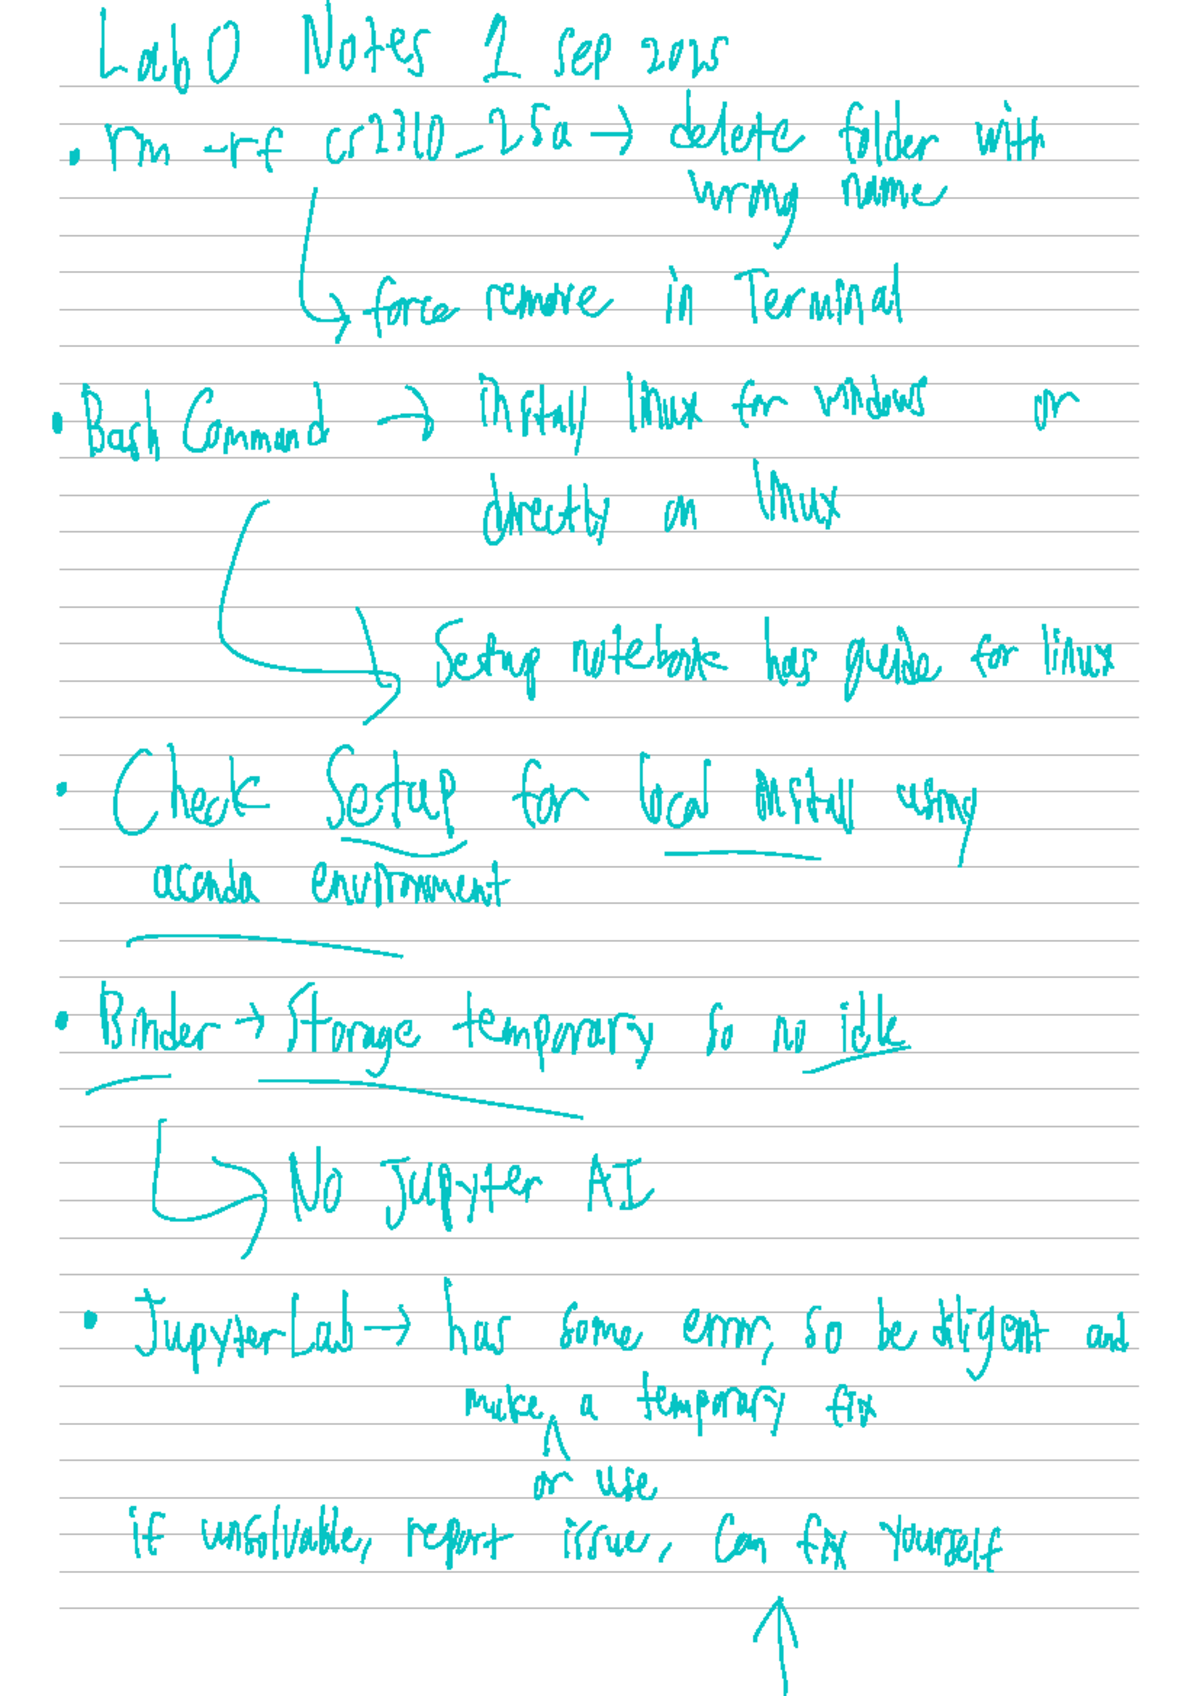 Lab 0 Notes 1 Sep 2025
• rm -rf cs2310_25a → delete folder with
wrong name
→ force remove in Terminal
• Bash Command → install linux for windows or
directly on linux
→ Setup notebook has guide for linux
• Check Setup for local install using
aconda environment
• Binder → Storage temporary so no idle
→ No Jupyter AI
• JupyterLab → has some error, so be diligent and
make a temporary fix
or use
if unsolvable, report issue, can fix yourself